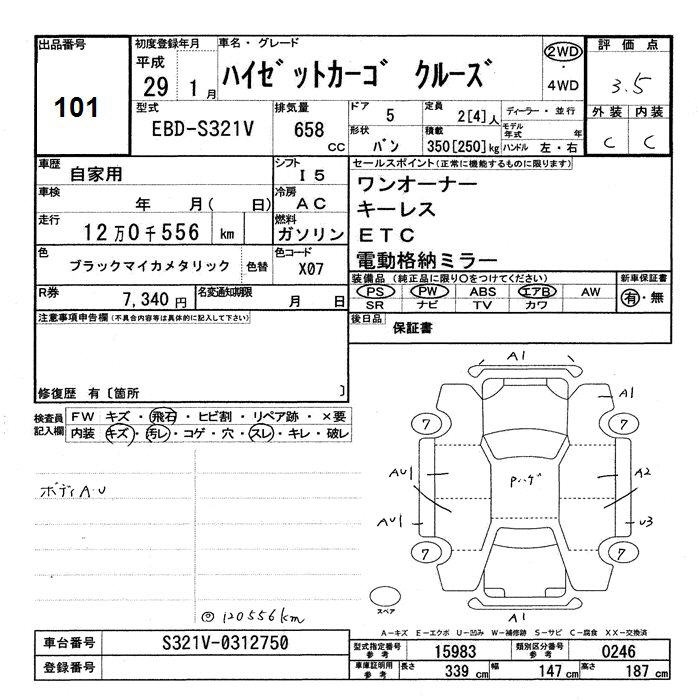 出品番号
101
初度登録年月
平成
29 1月
車名・グレード
ハイゼットカーゴ クルーズ
2WD
・
4WD
評価点
3.5
型式
EBD-S321V
排気量
658 CC
ドア 5
形状 バン
定員 2[4]人
積載 350[250]kg
ディーラー・並行
モデル年式 年
ハンドル 左・右
外装 内装
C C
車歴 自家用
シフト I5
車検 年 月( 日)
冷房 AC
走行 12万0千556 km
燃料 ガソリン
色 ブラックマイカメタリック 色替
色コード X07
R券 7,340円
名変通知期限 月 日
セールスポイント(正常に機能するものに限ります)
ワンオーナー
キーレス
ETC
電動格納ミラー
装備品(純正品に限り○をつけてください)
新車保証書
PS PW ABS エアB AW
SR ナビ TV カワ
有・無
後日品 保証書
注意事項申告欄(不具合内容等は具体的に記入して下さい)
修復歴 有〔箇所 〕
検査員記入欄
FW キズ・飛石・ヒビ割・リペア跡・×要
内装 キズ・汚レ・コゲ・穴・スレ・キレ・破レ
ボディA・U
◎120556km
A1
A1
7
7
AU1
Pハゲ
A2
AU1
U3
7
7
スペア
A1
A−キズ E−エクボ U−凹み W−補修跡 S−サビ C−腐食 XX−交換済
車台番号 S321V-0312750
登録番号
型式指定番号参考 15983
類別区分番号参考 0246
車庫証明用参考 長さ 339cm 幅 147cm 高さ 187cm